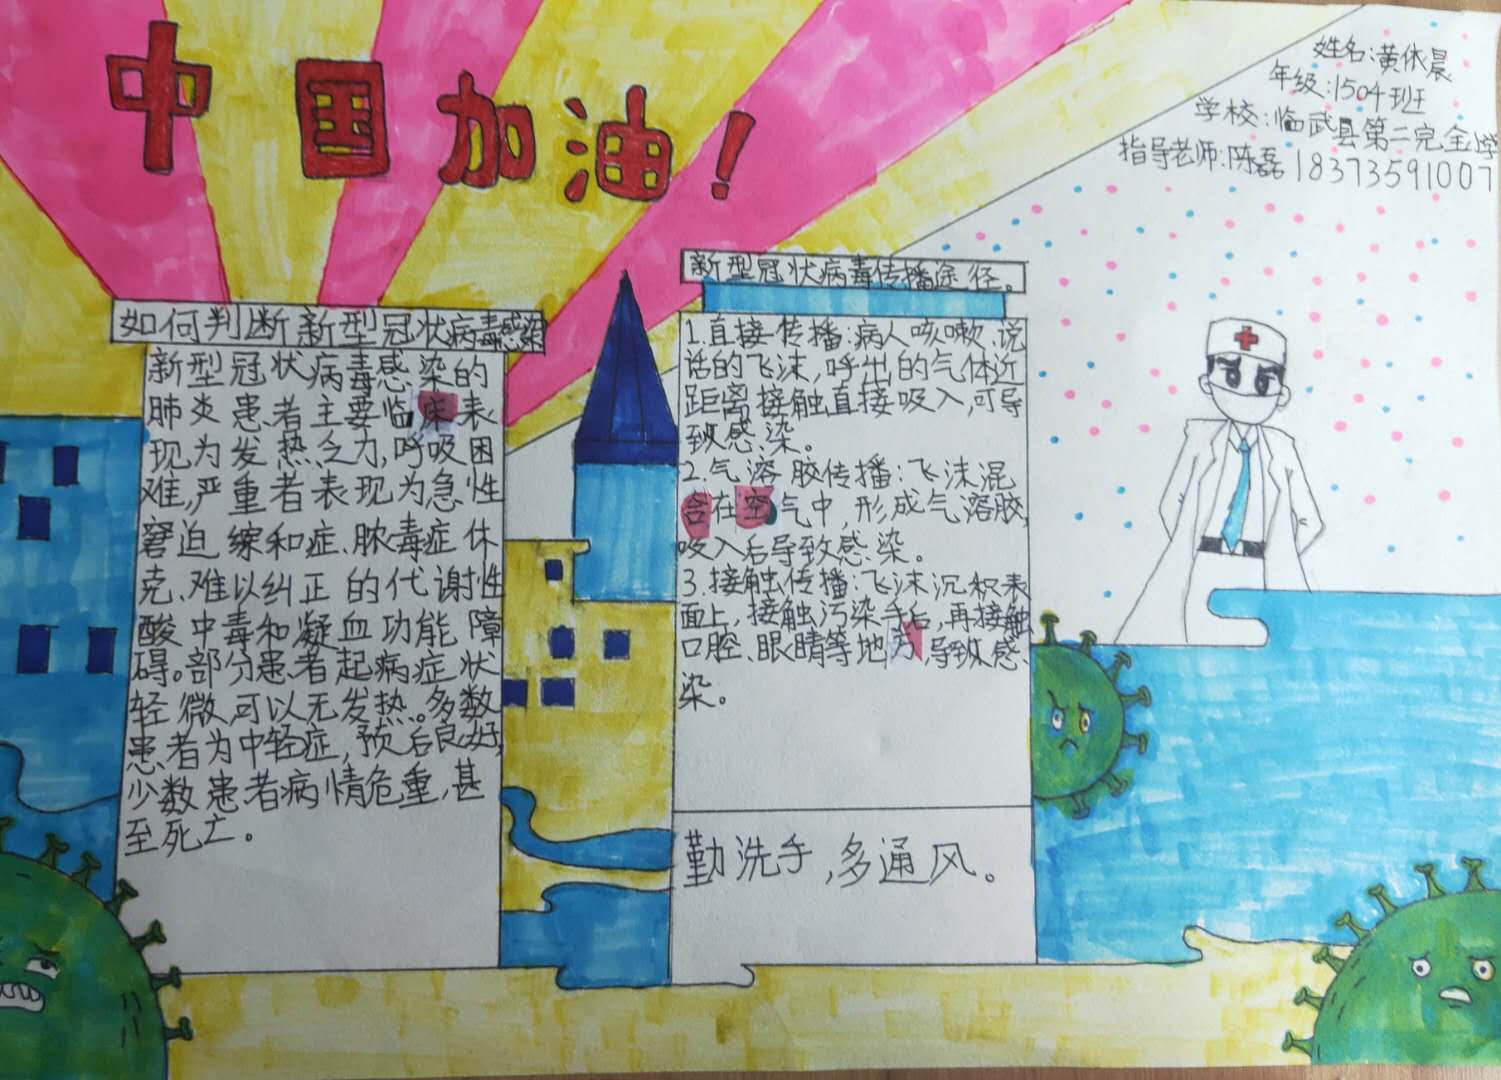 中国加油！
姓名:黄依晨
年级:1504班
学校:临武县第二完全小学
指导老师:陈磊 18373591007
如何判断新型冠状病毒感染
新型冠状病毒感染的
肺炎患者主要临床表
现为发热、乏力,呼吸困
难,严重者表现为急性
窘迫综和症、脓毒症休
克、难以纠正的代谢性
酸中毒和凝血功能障
碍。部分患者起病症状
轻微,可以无发热。多数
患者为中轻症,预后良好,
少数患者病情危重,甚
至死亡。
新型冠状病毒传播途径。
1.直接传播:病人咳嗽、说
话的飞沫,呼出的气体近
距离接触直接吸入,可导
致感染。
2.气溶胶传播:飞沫混
含在空气中,形成气溶胶,
吸入后导致感染。
3.接触传播:飞沫沉积表
面上,接触污染手后,再接触
口腔、眼睛等地方,导致感
染。
勤洗手,多通风。